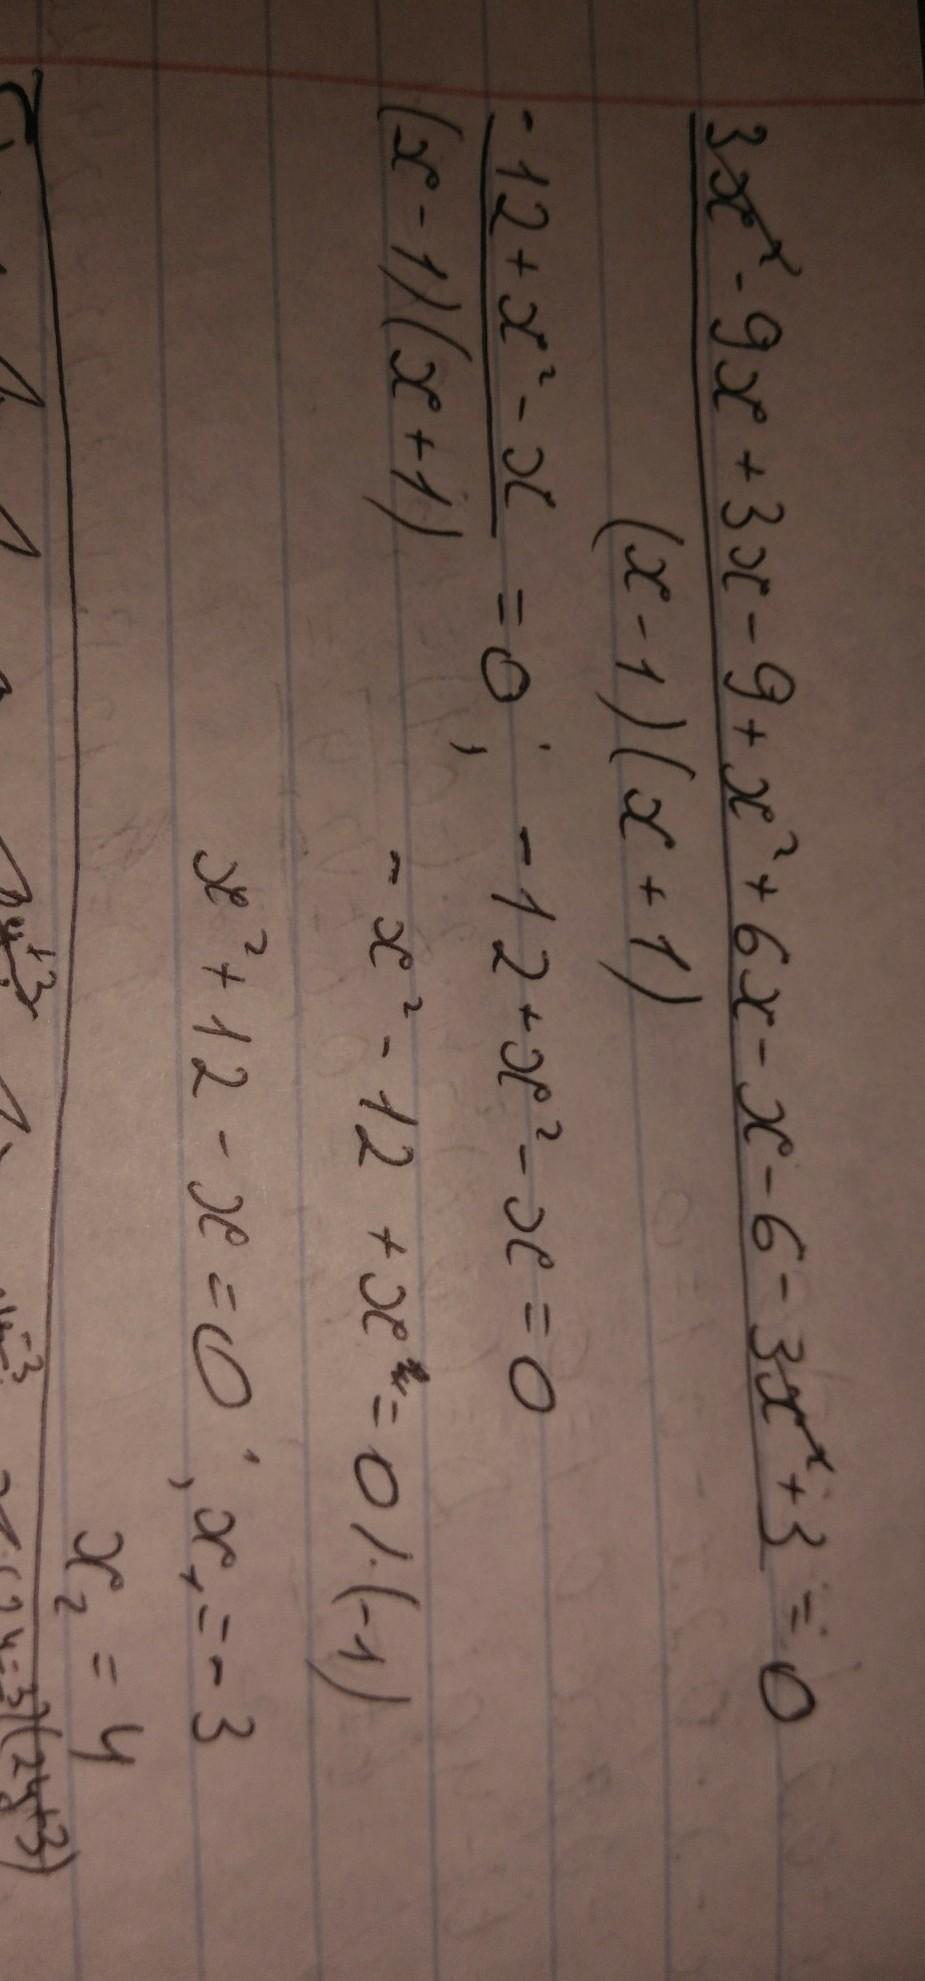 3x² - 9x + 3x - 9 + x² + 6x - x - 6 - 3x² + 3 = 0
(x - 1)(x + 1)
- 12 + x² - x = 0 ; - 12 + x² - x = 0
(x - 1)(x + 1) - x² - 12 + x = 0 / · (-1)
x² + 12 - x = 0 ; x₁ = - 3
x₂ = 4